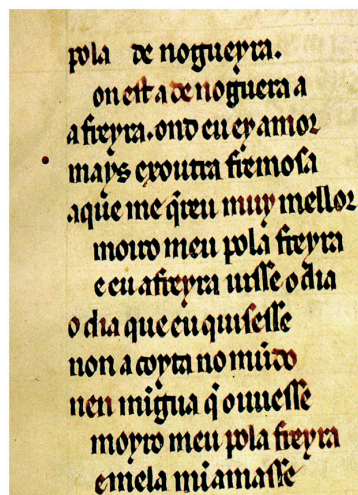 pola de nogueyra.
on est a de noguera a
a freyra. ond eu ey amor
mays exoutra fremosa
aque me q̃reu muy mellor
moiro meu pola freyra
e eu a freyra uisse o dia
o dia que eu quisesse
non a coyta no mũdo
nen mĩgua q̃ ouuesse
moyro meu pola freyra
e mela mi amasse